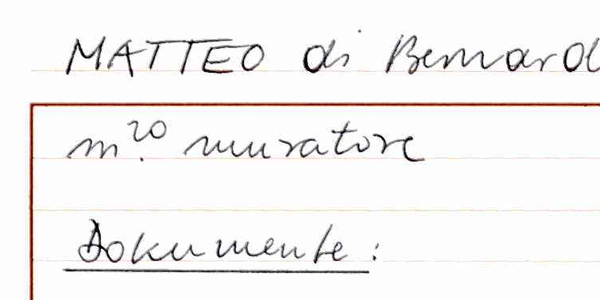 MATTEO di Bernard
m.ro muratore
Dokumente: